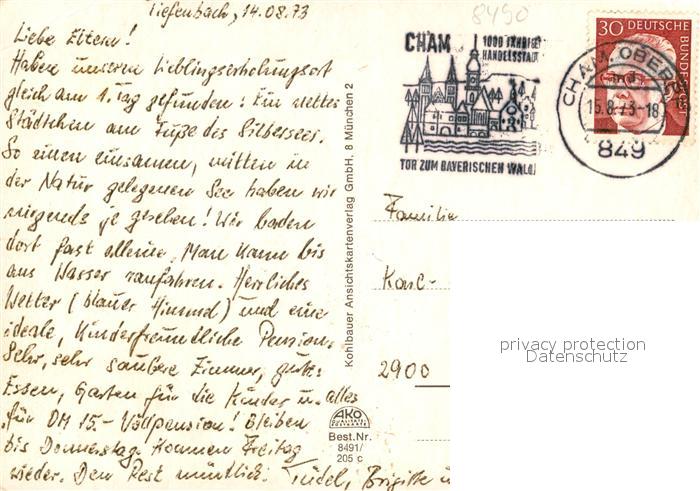 Tiefenbach, 14.08.73
Liebe Eltern!
Haben unseren Lieblingserholungsort
gleich am 1. Tag gefunden: Ein nettes
Städtchen am Fuße des Silbersees.
So einen einsamen, mitten in
der Natur gelegenen See haben wir
nirgends je gesehen! Wir baden
dort fast alleine. Man kann bis
ans Wasser ranfahren. Herrliches
Wetter (blauer Himmel) und eine
ideale, kinderfreundliche Pension.
Sehr, sehr saubere Zimmer, gutes
Essen, Garten für die Kinder u. alles
für DM 15.- Vollpension! Bleiben
bis Donnerstag. Kommen Freitag
wieder. Den Rest mündlich. Brigitte
Kohlbauer Ansichtskartenverlag GmbH, 8 München 2
AKO
Best.Nr.
8491/
205 c
8490
CHAM 1000 JÄHRIGE
HANDELSSTADT
TOR ZUM BAYERISCHEN WALD
30 DEUTSCHE BUNDESPOST
CHAM, OBERPF
15.8.73-18
849
Familie
Karl-
2900
privacy protection
Datenschutz